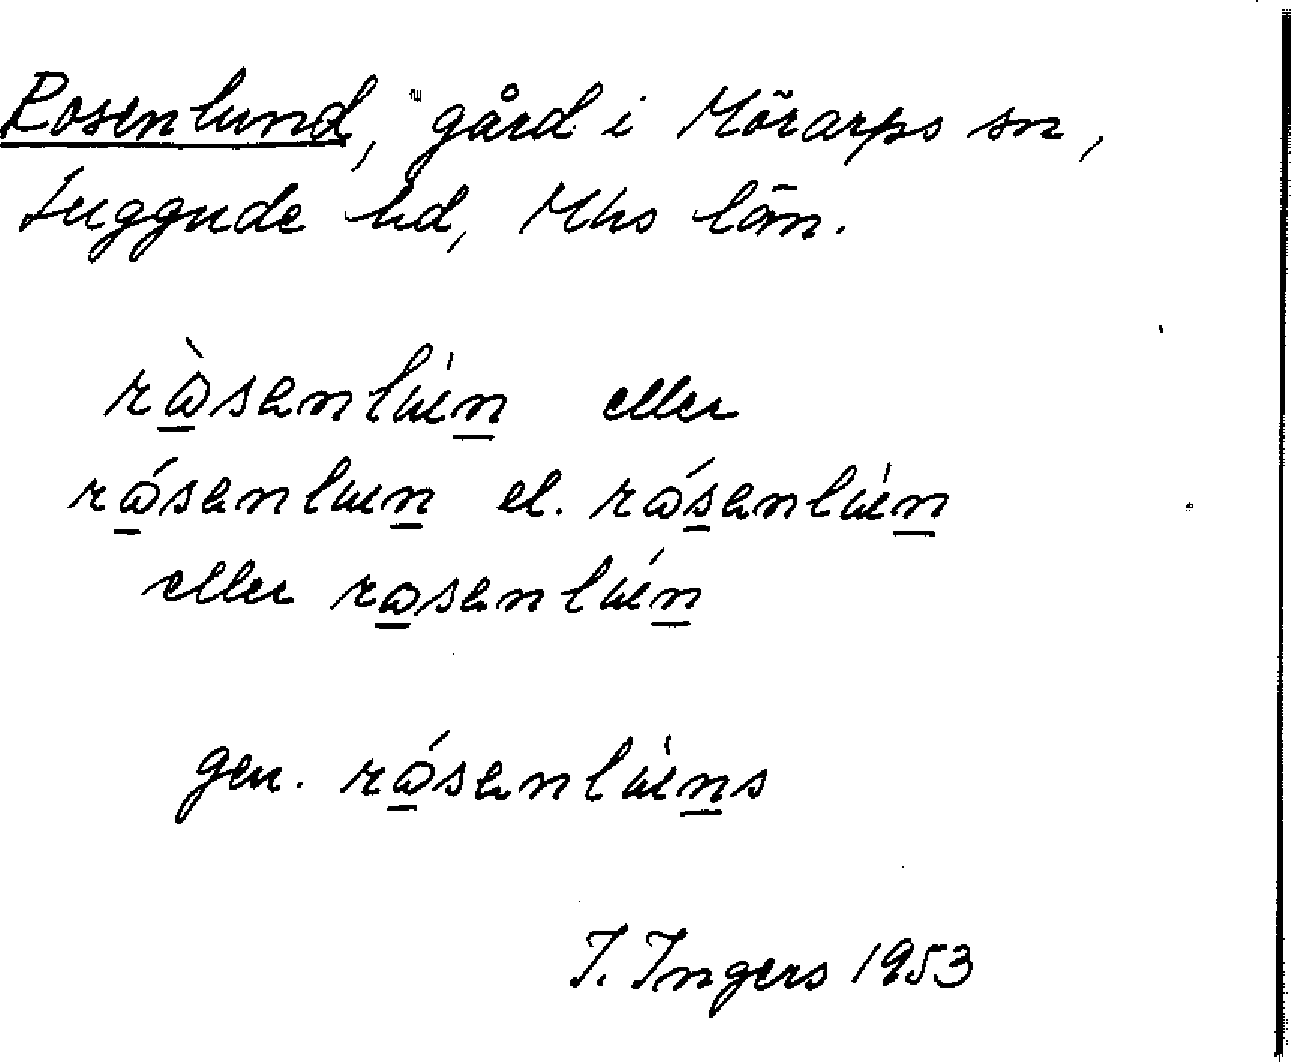 Rosenlund, gård i Mörarps sn,
Luggude hd, Mhs län.
ròsenlun eller
rósenlun el. rósenlun
eller rosenlún
gen. rósenluns
I. Ingers 1953